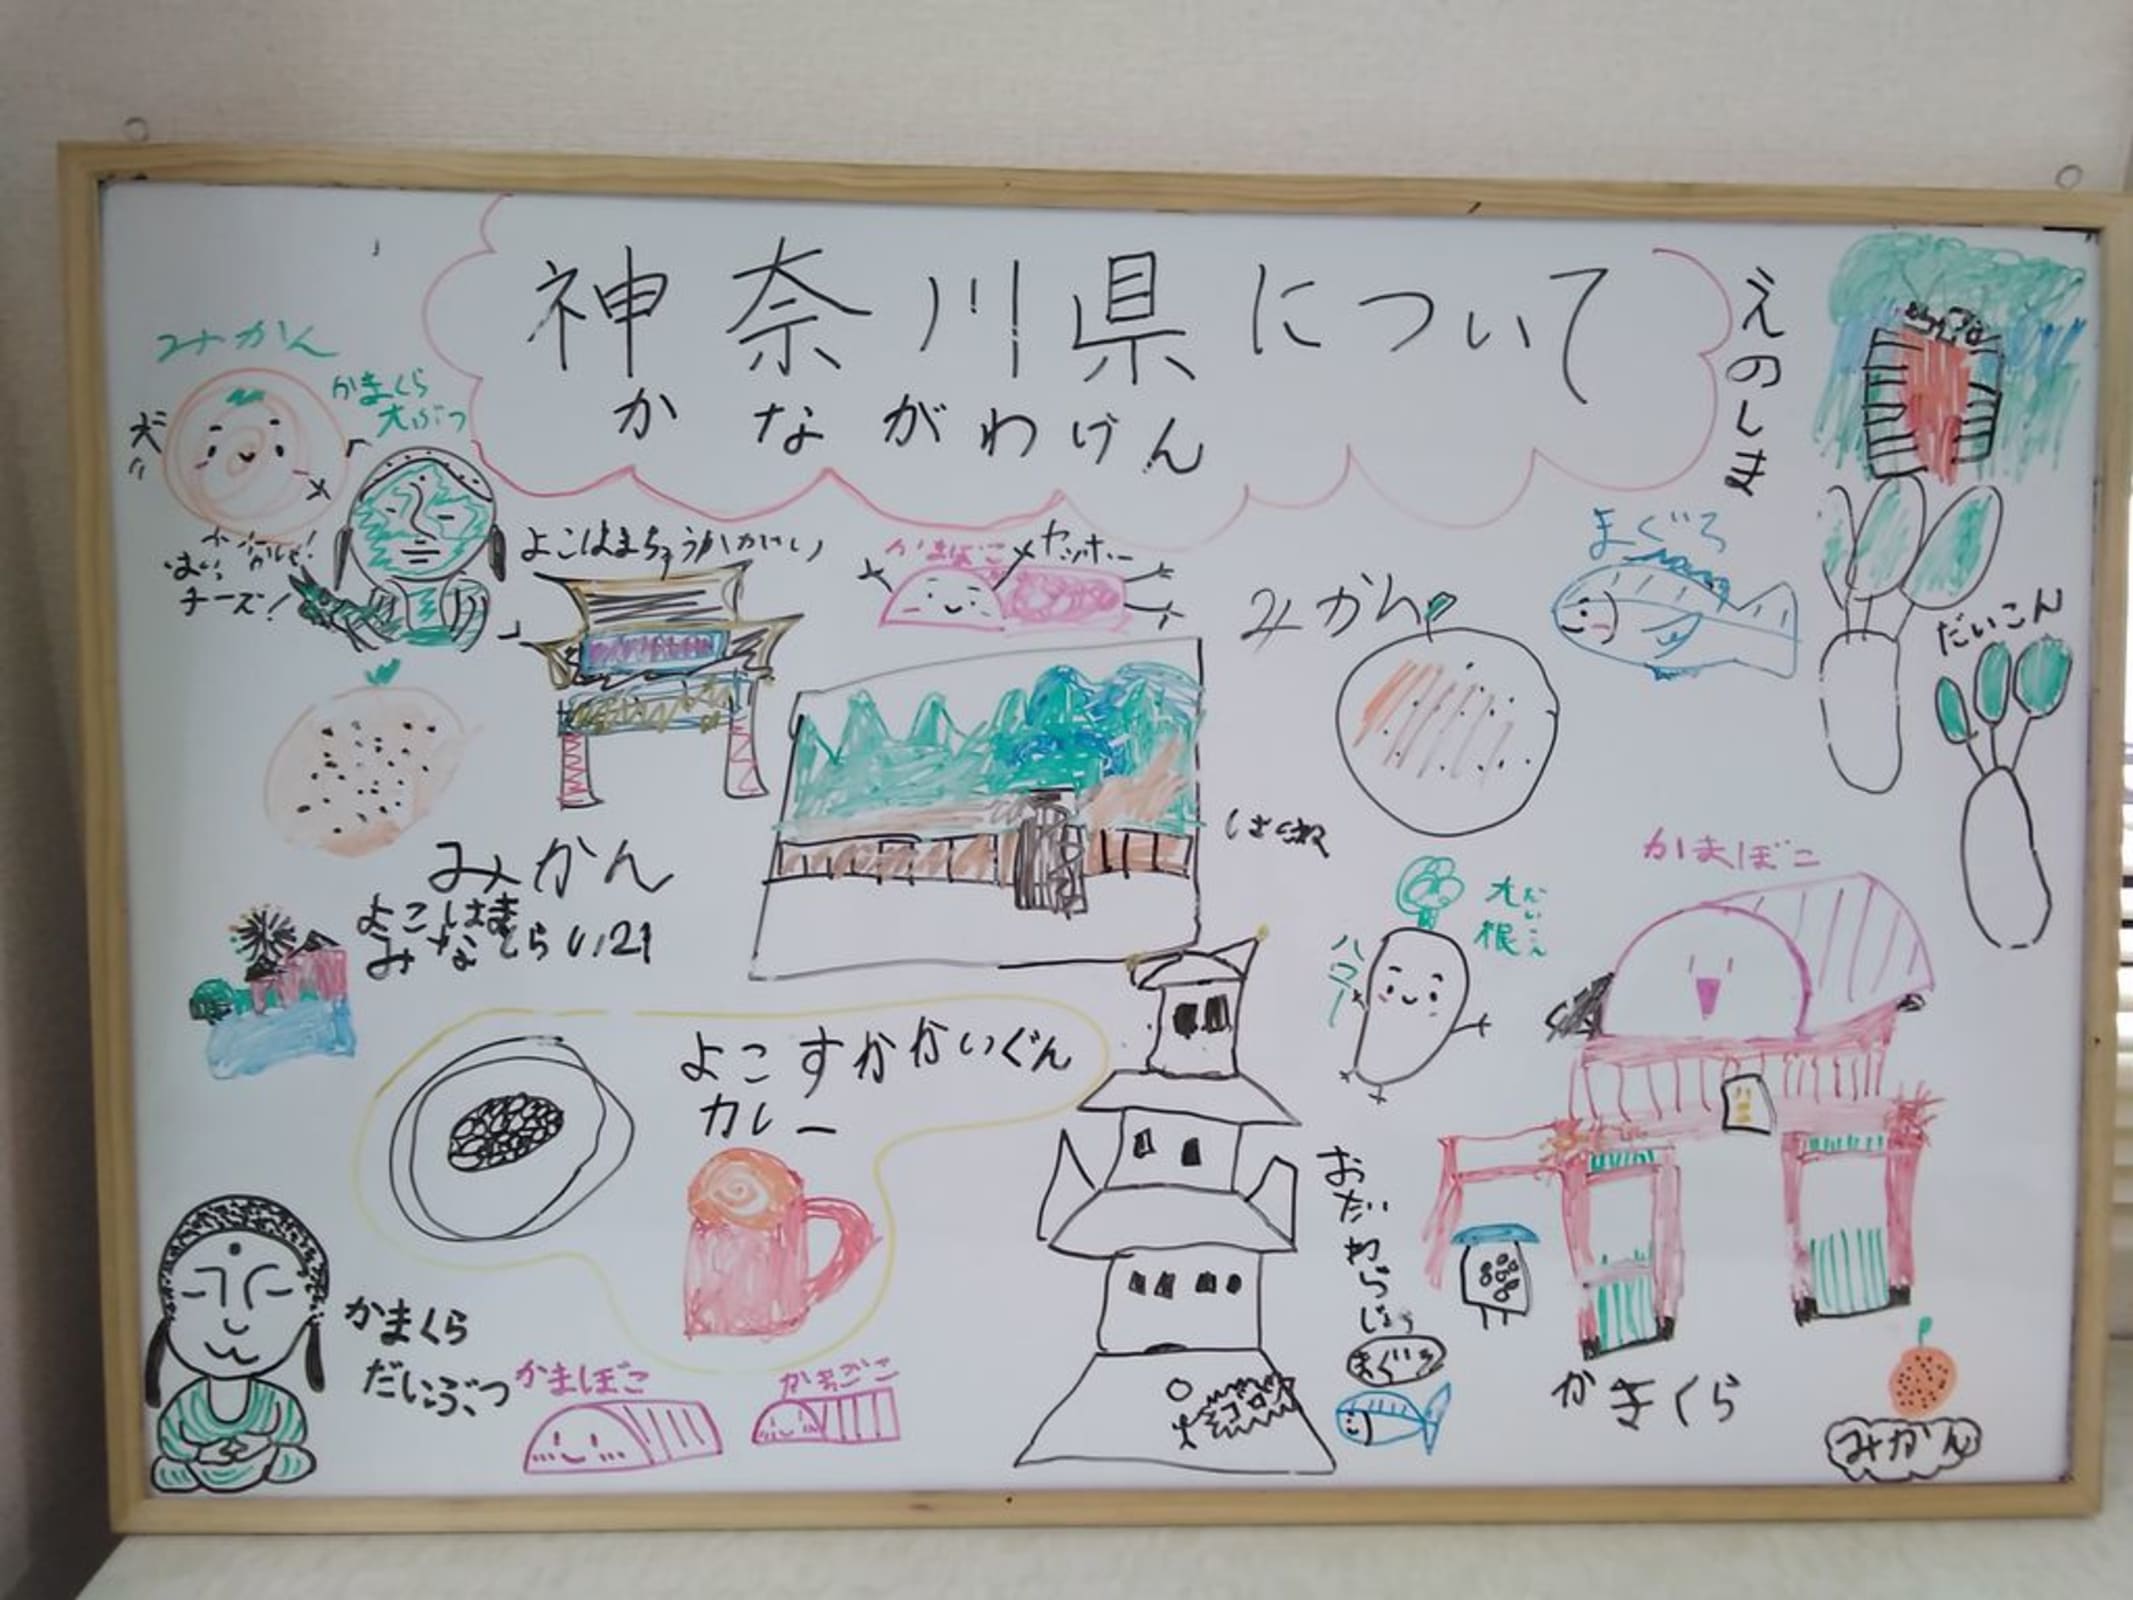 神奈川県について
かながわけん
えのしま
みかん
かまくら
大ぶつ
チーズ!
よこはまちゅうかがい
かまぼこ
ヤッホー
みかん
まぐろ
だいこん
みかん
よこはま
みなとらい21
かまぼこ
大根
だいこん
ハロー
よこすかかいぐん
カレー
おだわらじょう
まぐろ
かまくら
だいぶつ
かまぼこ
かまぼこ
かまくら
みかん